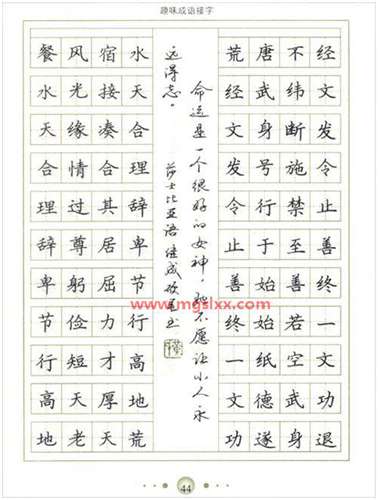 趣味成语接字
餐风宿水
水光接天
天缘凑合
合情合理
理过其辞
辞尊居卑
卑躬屈节
节俭力行
行短才高
高天厚地
地老天荒
命运是一个很好的女神，她不愿让小人永
远得志。
莎士比亚语
荒唐不经
经武纬文
文身断发
发号施令
令行禁止
止于至善
善始善终
终始若一
一纸空文
文德武功
功遂身退
www.mgslxx.com
44